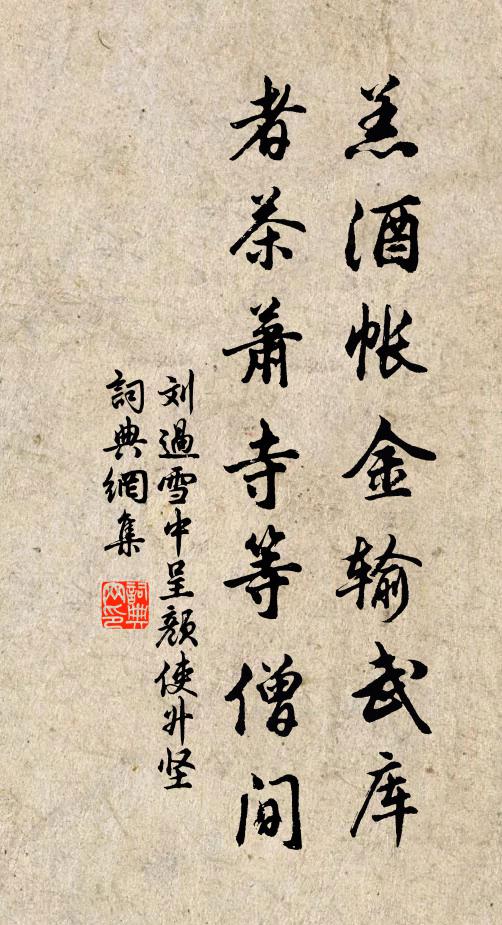 羔酒帐金输武库
者茶萧寺等僧间
刘過雪中呈颜使升坚
詞典網集
詞典网印